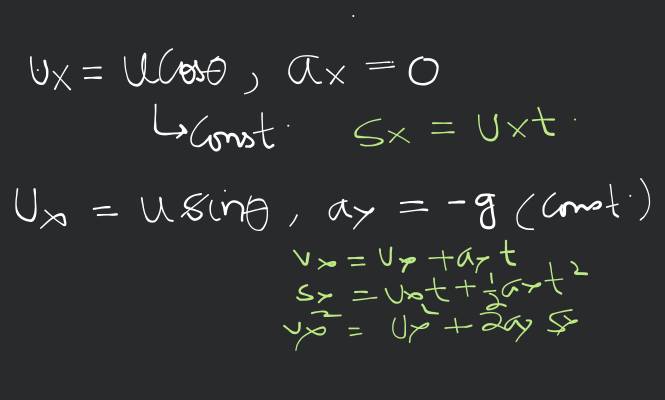 ux = u cosθ, ax = 0
↳ const. sx = uxt.
uy = u sinθ, ay = -g (const.)
vy = uy + ay t
sy = uyt + 1/2 ayt²
vy² = uy² + 2ay sy